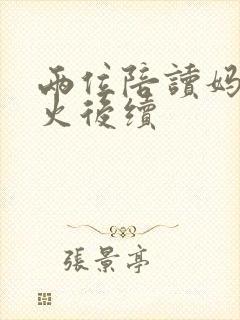 兩位陪讀妈
火後續
張景亭